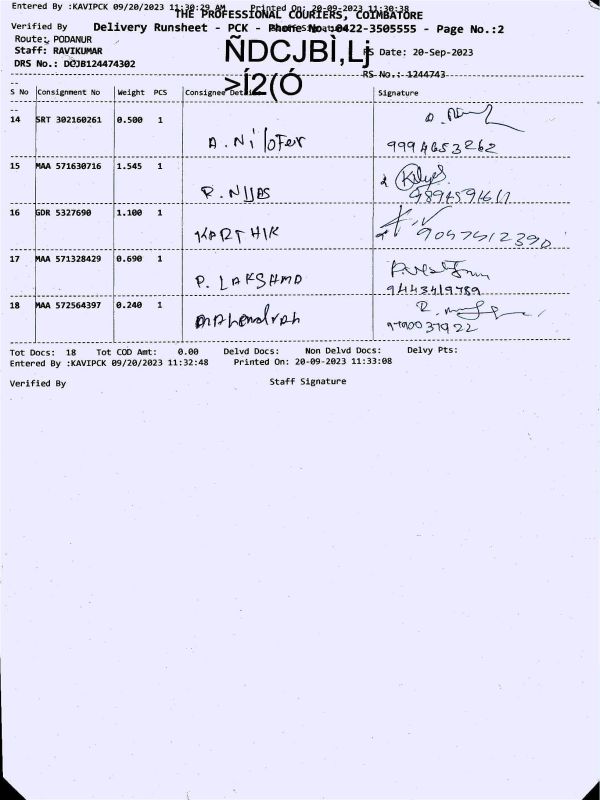 Entered By :KAVIPCK 09/20/2023 11:30:29 AM Printed On: 20-09-2023 11:30:38
THE PROFESSIONAL COURIERS, COIMBATORE
Verified By
Delivery Runsheet - PCK - Phone No.:0422-3505555 - Page No.:2
Route: PODANUR
Staff: RAVIKUMAR
RS Date: 20-Sep-2023
DRS No.: DCJB124474302
RS No.: 1244743
ÑDCJBÌ,Lj
>Í2(Ó
S No Consignment No Weight PCS Consignee Details Signature
14 SRT 302160261 0.500 1
A. Nilofer
9994653262
15 MAA 571630716 1.545 1
R. NIJAS
16 GDR 5327690 1.100 1
KARTHIK
17 MAA 571328429 0.690 1
P.
9443419789
18 MAA 572564397 0.240 1
Tot Docs: 18 Tot COD Amt: 0.00 Delvd Docs: Non Delvd Docs: Delvy Pts:
Entered By :KAVIPCK 09/20/2023 11:32:48 Printed On: 20-09-2023 11:33:08
Verified By Staff Signature